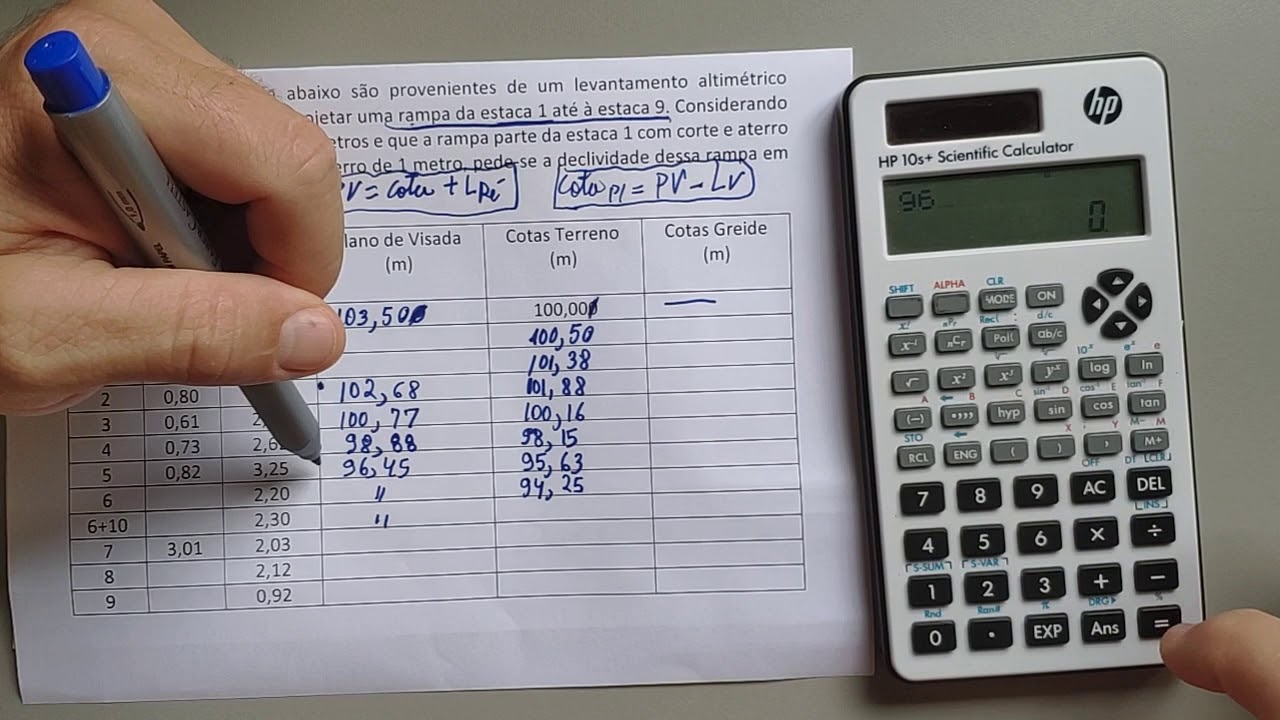 abaixo são provenientes de um levantamento altimétrico
uma rampa da estaca 1 até à estaca 9. Considerando
e que a rampa parte da estaca 1 com corte e aterro
de 1 metro, pede-se a declividade dessa rampa em
V = Cota + LRé
Cota PI = PV - LV
lano de Visada (m)
Cotas Terreno (m)
Cotas Greide (m)
103,50
100,00
—
100,50
101,38
2 0,80 102,68 101,88
3 0,61 100,77 100,16
4 0,73 98,88 98,15
5 0,82 3,25 96,45 95,63
6 2,20 " 94,25
6+10 2,30 "
7 3,01 2,03
8 2,12
9 0,92
hp
HP 10s+ Scientific Calculator
96
0.
SHIFT ALPHA CLR
MODE ON
x! nPr Rec( : d/c
x⁻¹ nCr Pol( ab/c
10ˣ eˣ e
√ x² x³ yˣ log ln
A B C sin⁻¹ D cos⁻¹ E tan⁻¹ F
(–) hyp sin cos tan
STO X Y M– M
RCL ENG ( ) , M+
OFF
7 8 9 AC DEL
INS
4 5 6 × ÷
S-SUM S-VAR
1 2 3 + −
Rnd Ran# π DRG▶ %
0 . EXP Ans =